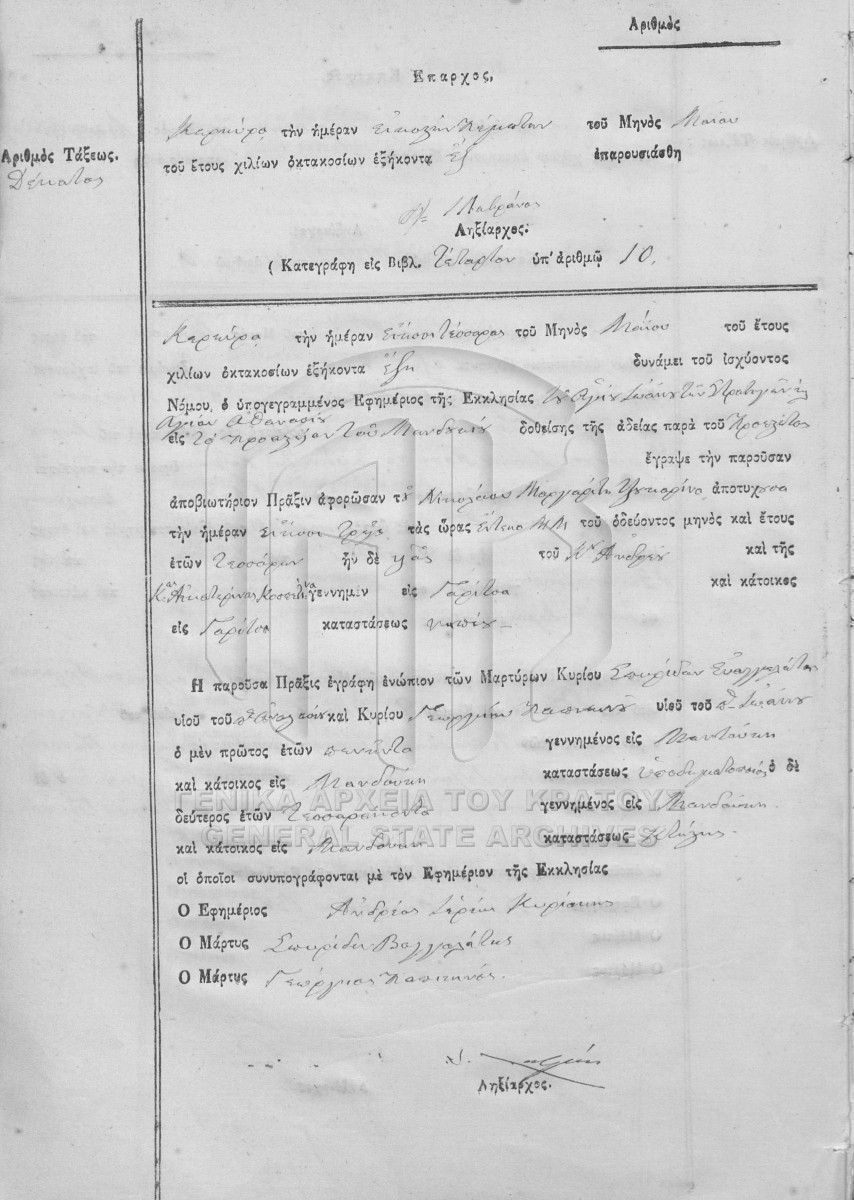 Αριθμὸς
Επαρχος,
Αριθμὸς Τάξεως.
Δέκατος
Κερκύρα τὴν ἡμέραν τοῦ Μηνὸς Μαΐου
τοῦ ἔτους χιλίων ὀκτακοσίων ἑξήκοντα ἓξ ἐπαρουσιάσθη
Ληξίαρχος.
( Κατεγράφη εἰς Βιβλ. Τέταρτον ὑπ' ἀριθμῷ 10.
Κερκύρα τὴν ἡμέραν Εἴκοσι τέσσαρας τοῦ Μηνὸς Μαΐου τοῦ ἔτους
χιλίων ὀκτακοσίων ἑξήκοντα ἓξ δυνάμει τοῦ ἰσχύοντος
Νόμου, ὁ ὑπογεγραμμένος Εφημέριος τῆς Εκκλησίας
Αγίου Αθανασίου
εἰς τὸ προάστιον τοῦ Μανδουκίου δοθείσης τῆς ἀδείας παρὰ τοῦ
ἔγραψε τὴν παροῦσαν
ἀποβιωτήριον Πρᾶξιν ἀφορῶσαν τ Νικολάου Μαργαρίτη ἀποτυχυσα
τὴν ἡμέραν εἴκοσι τρεῖς τὰς ὥρας ἕνδεκα Μ.Μ τοῦ ὁδεύοντος μηνὸς καὶ ἔτους
ἐτῶν τεσσάρων ἦν δὲ υἱὸς τοῦ Κυ Ἀνδρέου καὶ τῆς
Κας Αἰκατερίνας γεννημέν εἰς Γαρίτσα καὶ κάτοικος
εἰς Γαρίτσα καταστάσεως νηπίου
Η παροῦσα Πρᾶξις ἐγράφη ἐνώπιον τῶν Μαρτύρων Κυρίου Σπυρίδων
υἱοῦ τοῦ καὶ Κυρίου Γεωργίου υἱοῦ τοῦ π Ἰωάννου
ὁ μὲν πρῶτος ἐτῶν πενῆντα γεννημένος εἰς Μαντούκι
καὶ κάτοικος εἰς Μανδούκι καταστάσεως ὑποδηματοποιός ὁ δὲ
δεύτερος ἐτῶν τεσσαράκοντα γεννημένος εἰς Μανδούκι
καὶ κάτοικος εἰς Μανδούκι καταστάσεως
οἱ ὁποῖοι συνυπογράφονται μὲ τὸν Εφημέριον τῆς Εκκλησίας
Ο Εφημέριος Ἀνδρέας Ἱερεὺς
Ο Μάρτυς Σπυρίδων
Ο Μάρτυς Γεώργιος
Ληξίαρχος.
ΓΕΝΙΚΑ ΑΡΧΕΙΑ ΤΟΥ ΚΡΑΤΟΥΣ
GENERAL STATE ARCHIVES